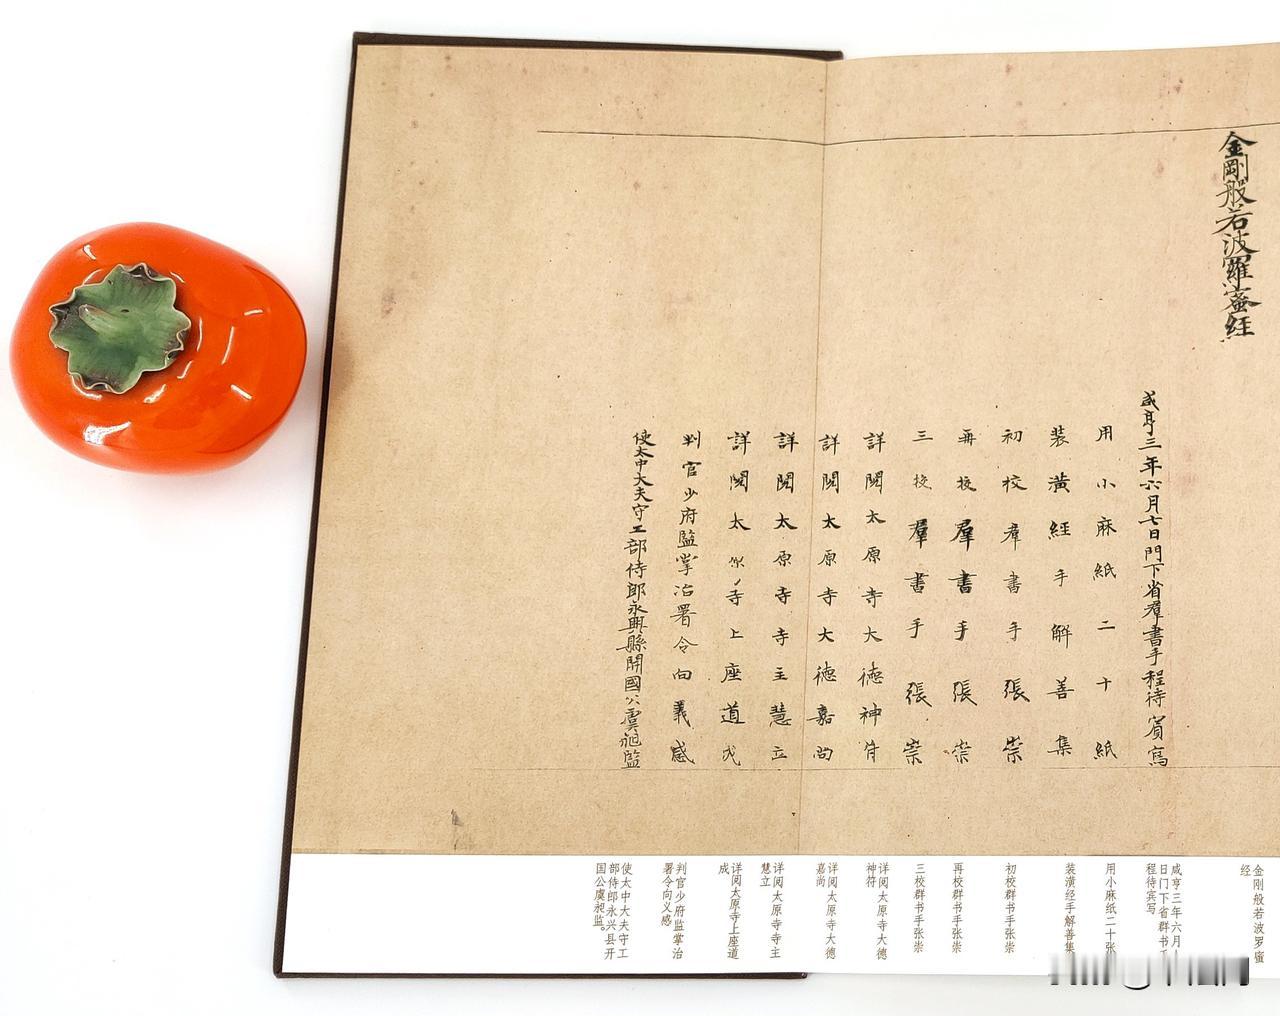 金剛般若波羅蜜經
咸亨三年六月七日門下省羣書手程待賓寫
用小麻紙二十紙
装潢經手解善集
初校羣書手張崇
再校羣書手張崇
三校羣書手張崇
詳閱太原寺大德神符
詳閱太原寺大德嘉尚
詳閱太原寺寺主慧立
詳閱太原寺上座道成
判官少府監掌冶署令向義感
使太中大夫守工部侍郎永興縣開國公虞昶監
金刚般若波罗蜜
经
咸亨三年六月
日门下省群书
程待宾写
用小麻纸二十
装潢经手解善集
初校群书手张崇
再校群书手张崇
三校群书手张崇
详阅太原寺大德
神符
详阅太原寺大德
嘉尚
详阅太原寺寺主
慧立
详阅太原寺上座道
成
判官少府监掌治
署令向义感
使太中大夫守工
部侍郎永兴县开
国公虞昶监。